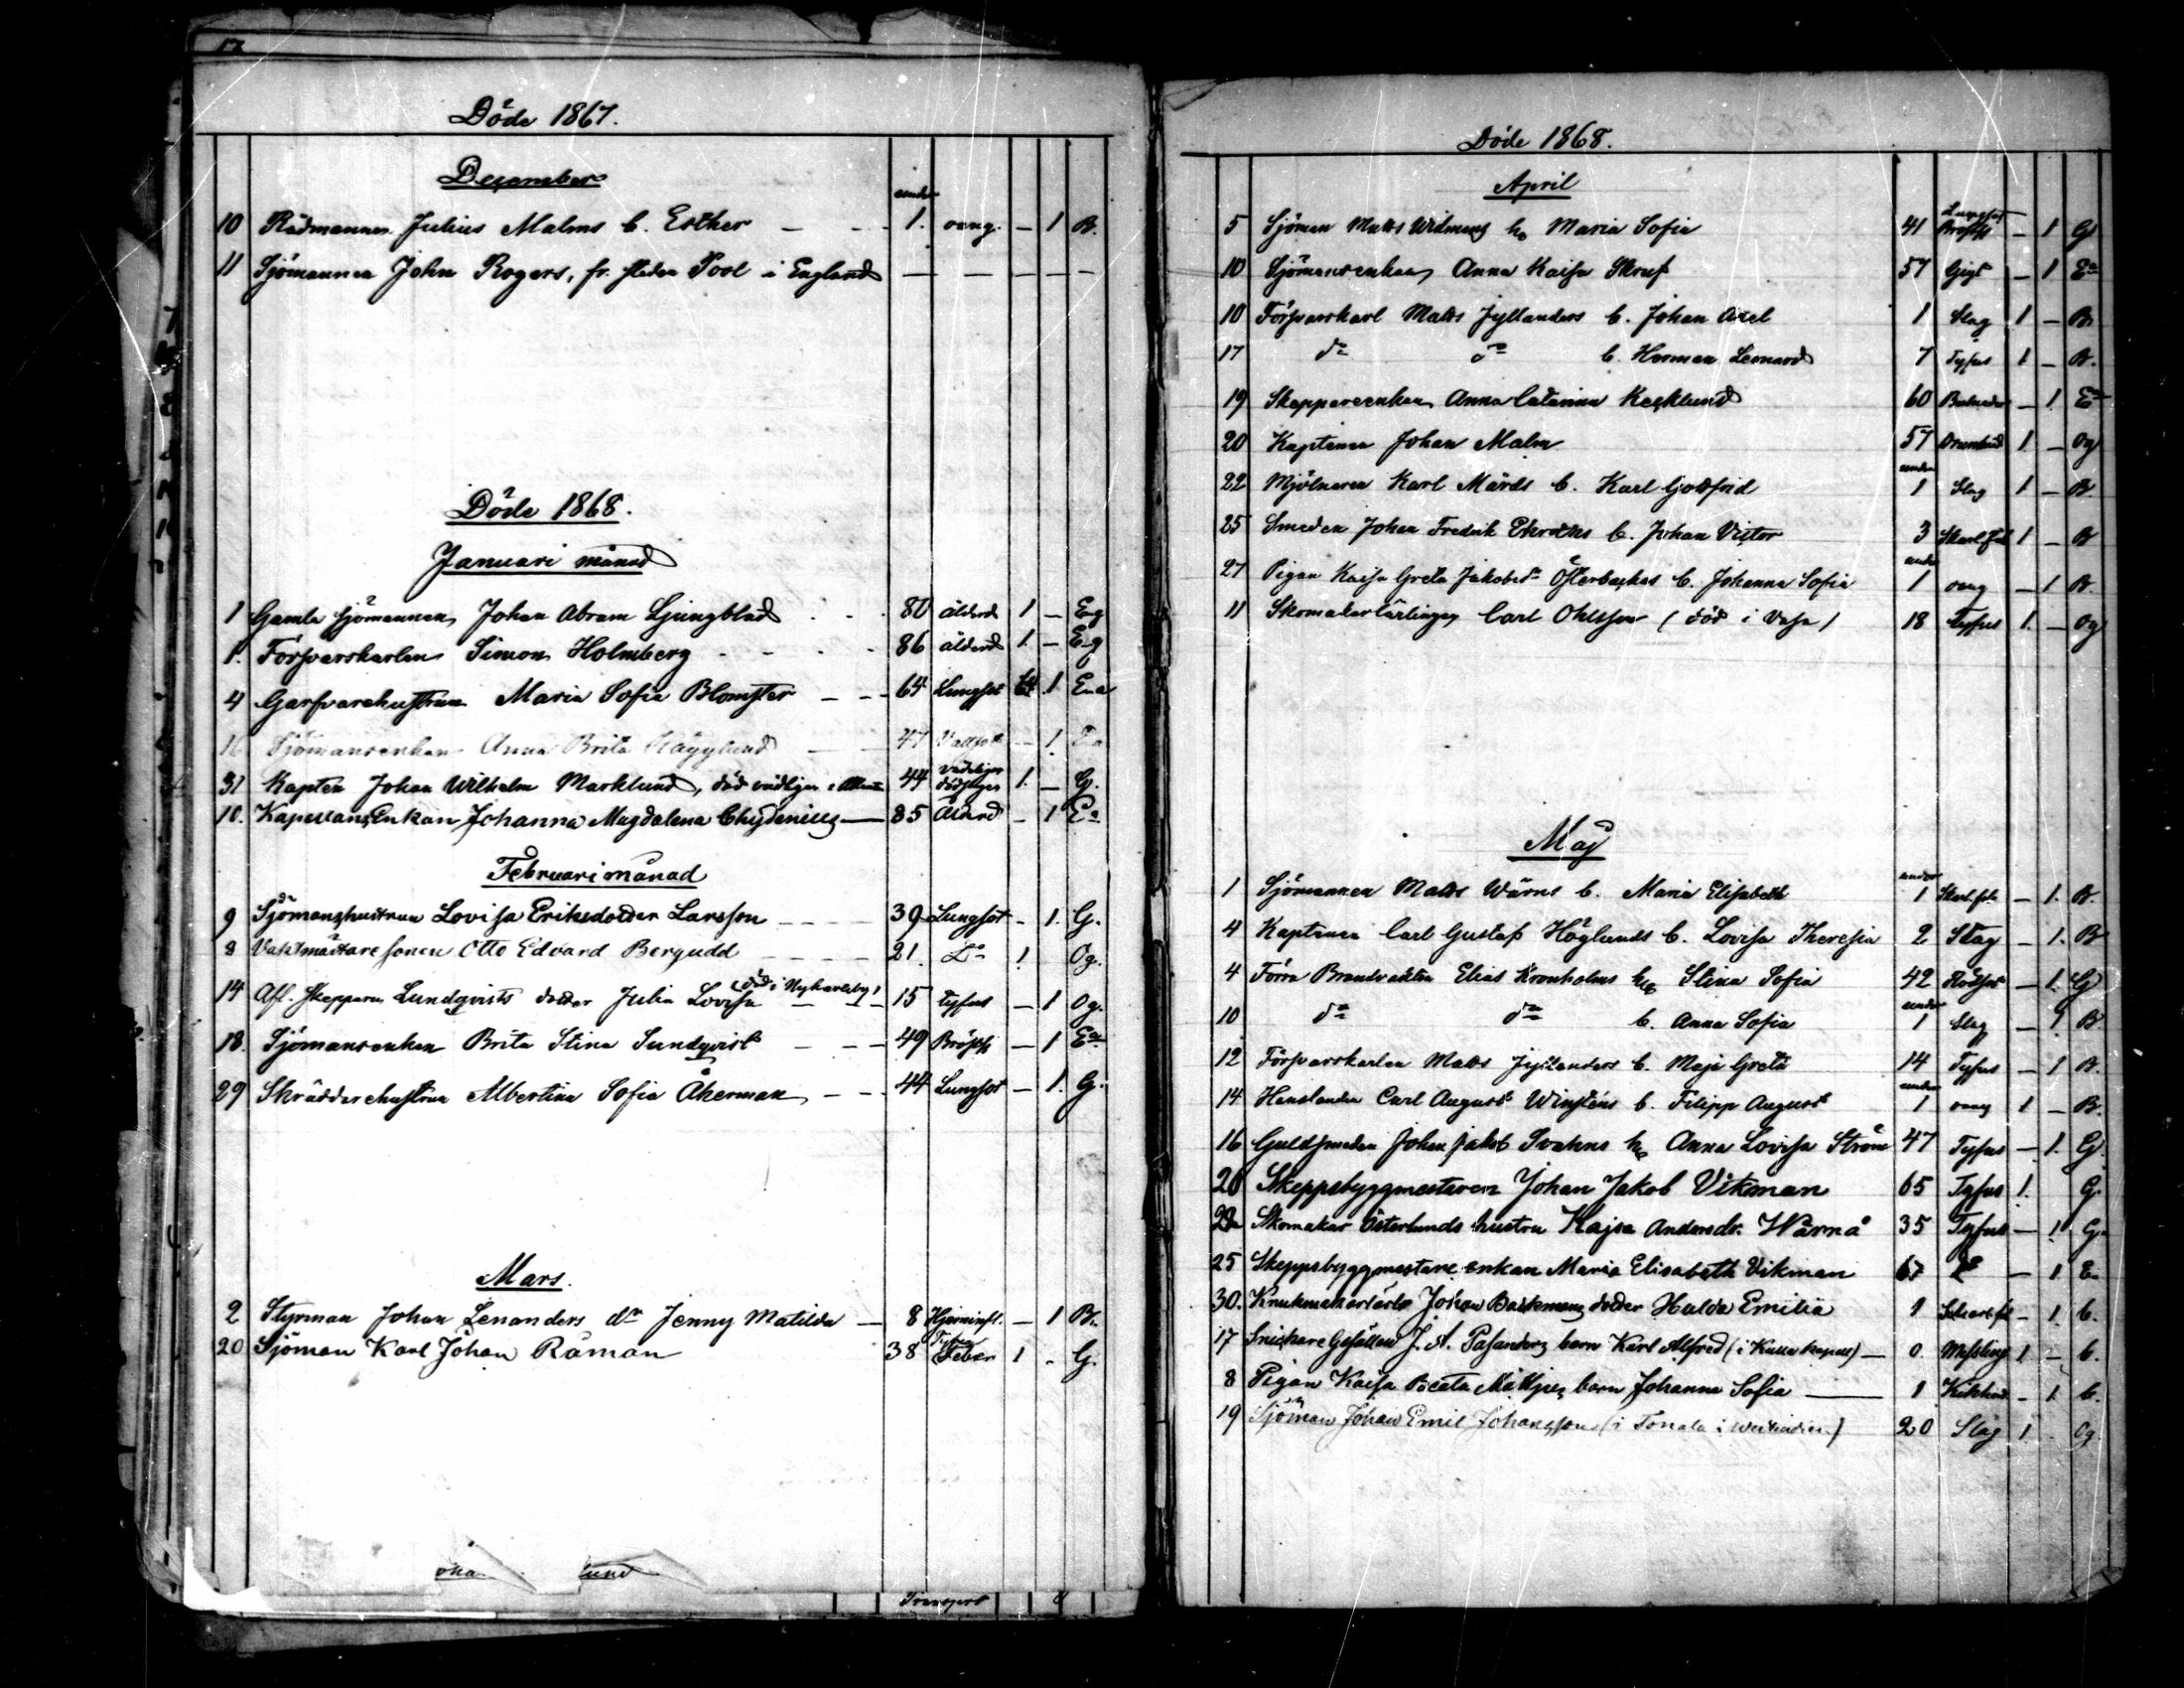 17
Döde 1867.
Dezember
10 Rådmannen Julius Malms b. Esther — — - under 1. oang. — 1 B.
11 Sjömannen John Rogers, fr. staden Pool i England — — — — —
Döde 1868.
Januari månad
1 Gamla sjömannen Johan Abram Ljungblad . . . 80 ålderd 1 — Eng
1. Försvarskarlen Simon Holmberg - - - - 86 ålderd 1. — Eng
4 Garfvarehustrun Maria Sofia Blomster — — 64 Lungsot 1 Ena
16 Sjömansenkan Anna Brita Hägglund — 47 Vattsot — 1. Ena
31 Kapten Johan Wilhelm Marklund, död vådligen i 44 vådligen dödsliges 1. — G.
10. Kapellans Enkan Johanna Magdalena Chydenius — 85 Ålderd — 1 Ea
Februari månad
9 Sjömanshustrun Lovisa Eriksdotter Larsson - - - - 39 Lungsot - 1. G.
9 Vaktmästare sonen Otto Edvard Bergudd - - - - - 21. Do 1 Og.
14 Afl. Skepparen Lundqvists dotter Julia Lovisa (död i Nykarleby) — — 15 tyfus — 1 Og.
18. Sjömansenkan Brita Stina Sundqvist — — — 49 Bröstsj — 1 Ea
29 Skräddarehustrun Albertina Sofia Åkerman - - - 44 Lungsot — 1. G.
Mars.
2 Styrman Johan Lenanders dr Jenny Matilda — 8 Hjerninfl. — 1 B.
20 Sjöman Karl Johan Råman 38 Tyfus Feber 1 - G.
oha lund
Transport 8
Döde 1868.
April
5 Sjöman Matts Widmans h. Maria Sofia 41 Lungsot Bröstsj — 1 G
10 Sjömansenkan Anna Kaisa Skruf 57 Gigt — 1 Ea
10 Försvarskarl Matts Jyllanders b. Johan Axel 1 Slag 1 — B.
17 do do b. Herman Leonard 7 Tyfus 1 — B.
19 Skeppareenkan Anna Catarina Kecklund 60 — 1. Ea
20 Kaptenen Johan Malm 57 1 — Og
22 Mjölnaren Karl Mårds b. Karl Gottfrid under 1 Slag 1 — B
25 Smeden Johan Fredrik b. Johan Victor 3 Skarl.feb 1 — B
27 Pigan Kaisa Greta Jakobsdr Österbackas b. Johanna Sofia under 1 oang — 1 B.
11 Skomakarlärlingen Carl Ohlsson (död i Vasa) 18 Tyfus 1. — Og
Maj
1 Sjömannen Matts Wärns b. Maria Elisabeth under 1 Skarl.feb. — 1. B.
4 Kaptenen Carl Gustaf Höglunds b. Lovisa Theresia 2 Slag — 1. B
4 Förra Brandvakten Elias Kronholms h. Stina Sofia 42 — 1. G
10 do do b. Anna Sofia under 1 Slag — 1 B
12 Försvarskarlen Matts Jyllanders b. Maja Greta 14 Tyfus — 1 B.
14 Carl August Winsténs b. Filipp August under 1 oang 1 — B.
16 Guldsmeden Johan Jakob Svahns h. Anna Lovisa Ström 47 Tyfus — 1. G.
20 Skeppsbyggmestaren Johan Jakob Vikman 65 Tyfus 1. G.
Skomakar Österlunds hustru Kajsa Andersdr. Wärnå 35 Tyfus — 1 G.
25 Skeppsbyggmestare enkan Maria Elisabeth Vikman 67 Do — 1 E.
30. Johan Backmans dotter Hulda Emilia 1 — 1. b.
17 Snickare Gesällen J. A. Pasanders barn Karl Alfred (i Kulla kapell) — 0. Messling 1 — b.
8 Pigan Kaisa Beata barn Johanna Sofia — 1 Kikhost — 1. b.
19 Sjöman Johan Emil Johansson (i Tonala i Westindien) 20 Slag 1 Og